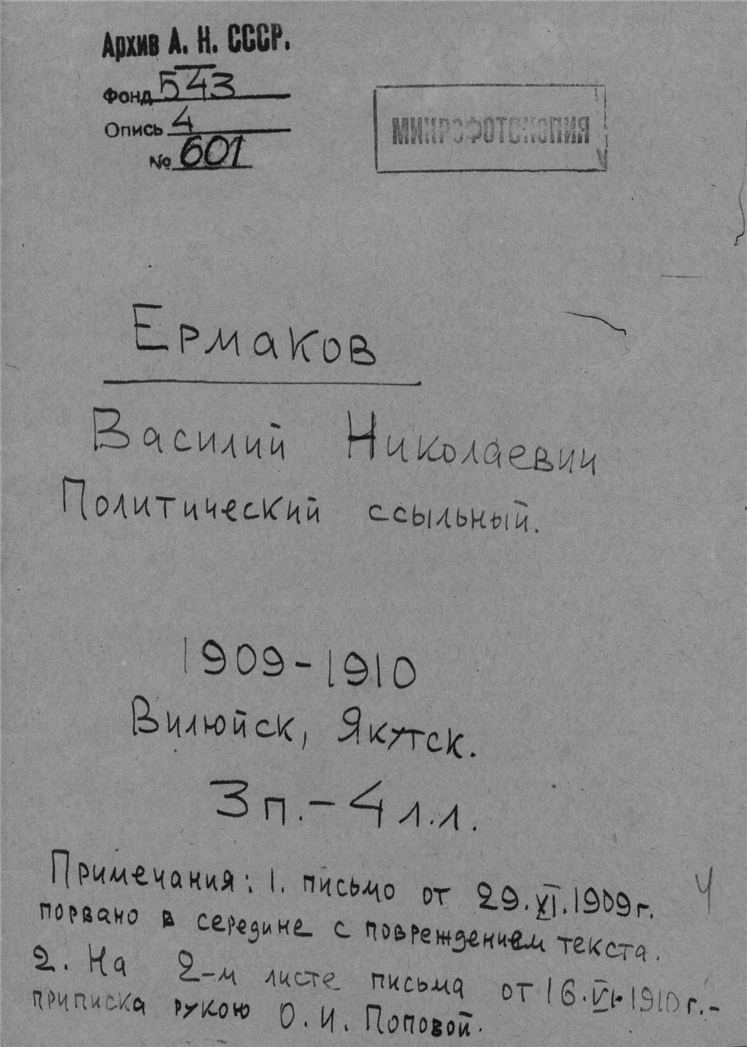 Архив А. Н. СССР.
Фонд 543
Опись 4
№ 601
МИКРОФОТОКОПИЯ
Ермаков
Василий Николаевич
Политический ссыльный.
1909-1910
Вилюйск, Якутск.
3 п. – 4 л.л.
Примечания: 1. письмо от 29.XI.1909 г.
порвано в середине с повреждением текста.
2. На 2-м листе письма от 16.VI.1910 г. –
приписка рукою О. И. Поповой.